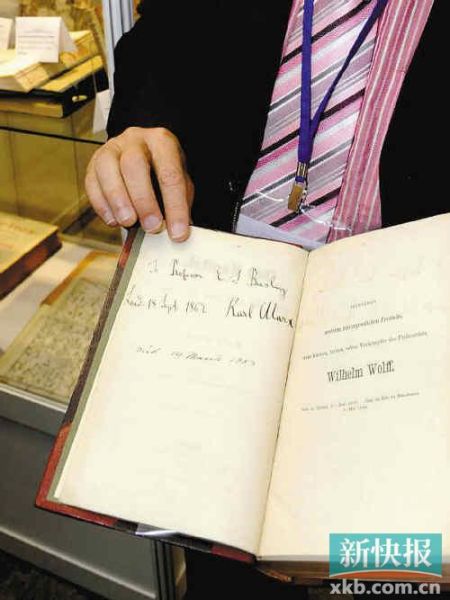 To Professor E. S. Beesly
Lond. 18 Sept. 1867 Karl Marx
died 14 March 1883
meinem unvergesslichen Freunde,
dem kühnen, treuen, edlen Vorkämpfer des Proletariats,
Wilhelm Wolff.
新快报
xkb.com.cn